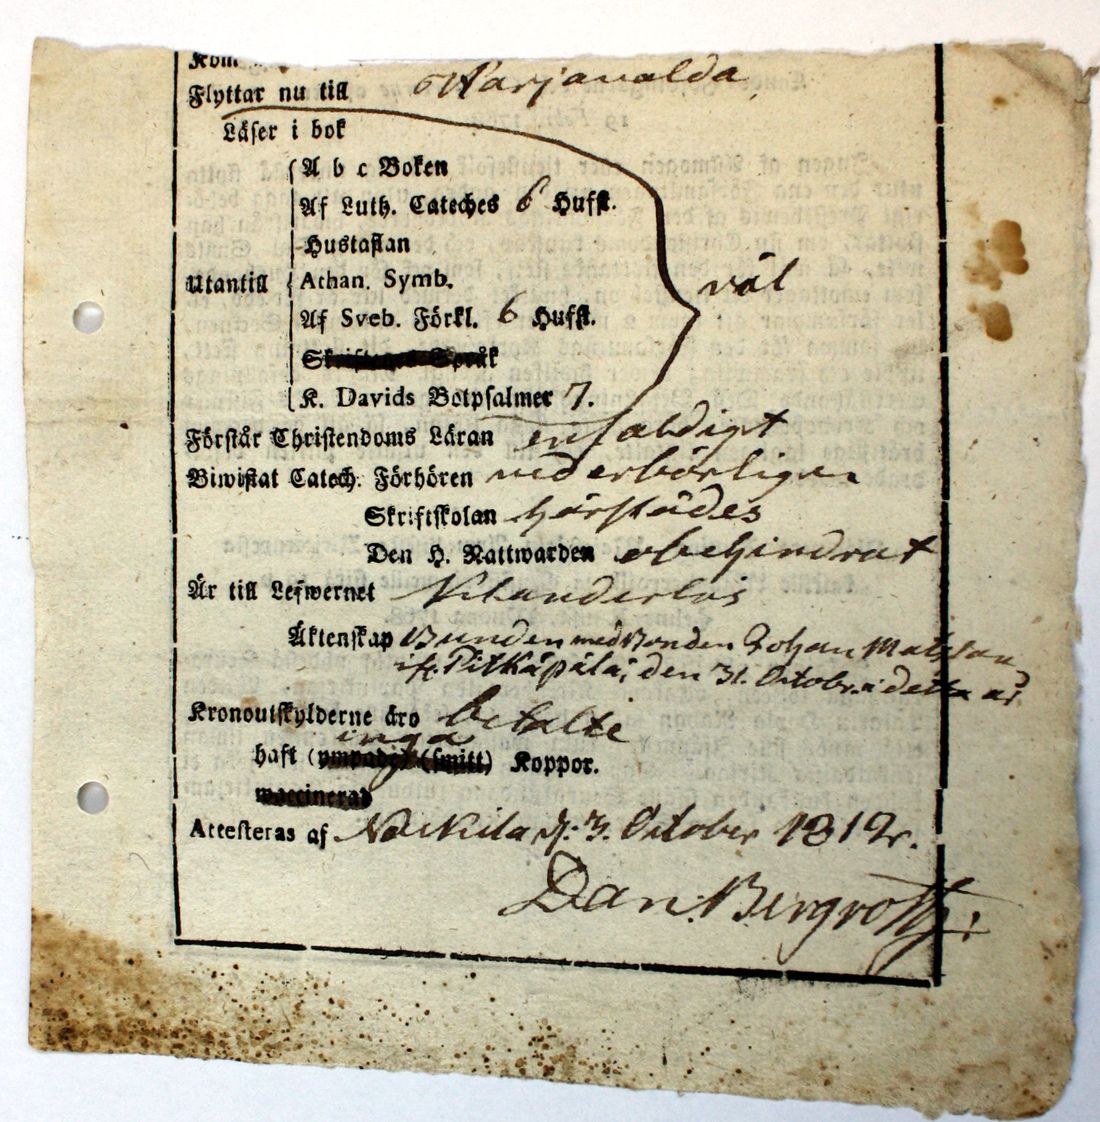 Flyttar nu till Harjavalda
Läser i bok
A b c Boken
Af Luth. Cateches 6 Hufst.
Hustaflan
Utantill Athan. Symb. väl
Af Sveb. Förkl. 6 Hufst.
Språk
K. Davids Botpsalmer 7.
Förstår Christendoms Läran enfaldigt
Biwistat Catech. Förhören vederbörligen
Skriftskolan härstädes
Den H. Nattwarden obehindrat
Är till Lefwernet Klanderlös
Äktenskap Bunden med Bonden Johan Matsson
Pitkäpälä, den 31. Octobr. i detta år
Kronoutskylderne äro betalte
inga
haft (ympade) (smitt) Koppor.
waccinerad
Attesteras af Nackila d: 3. October 1812.
Dan. Bergroth